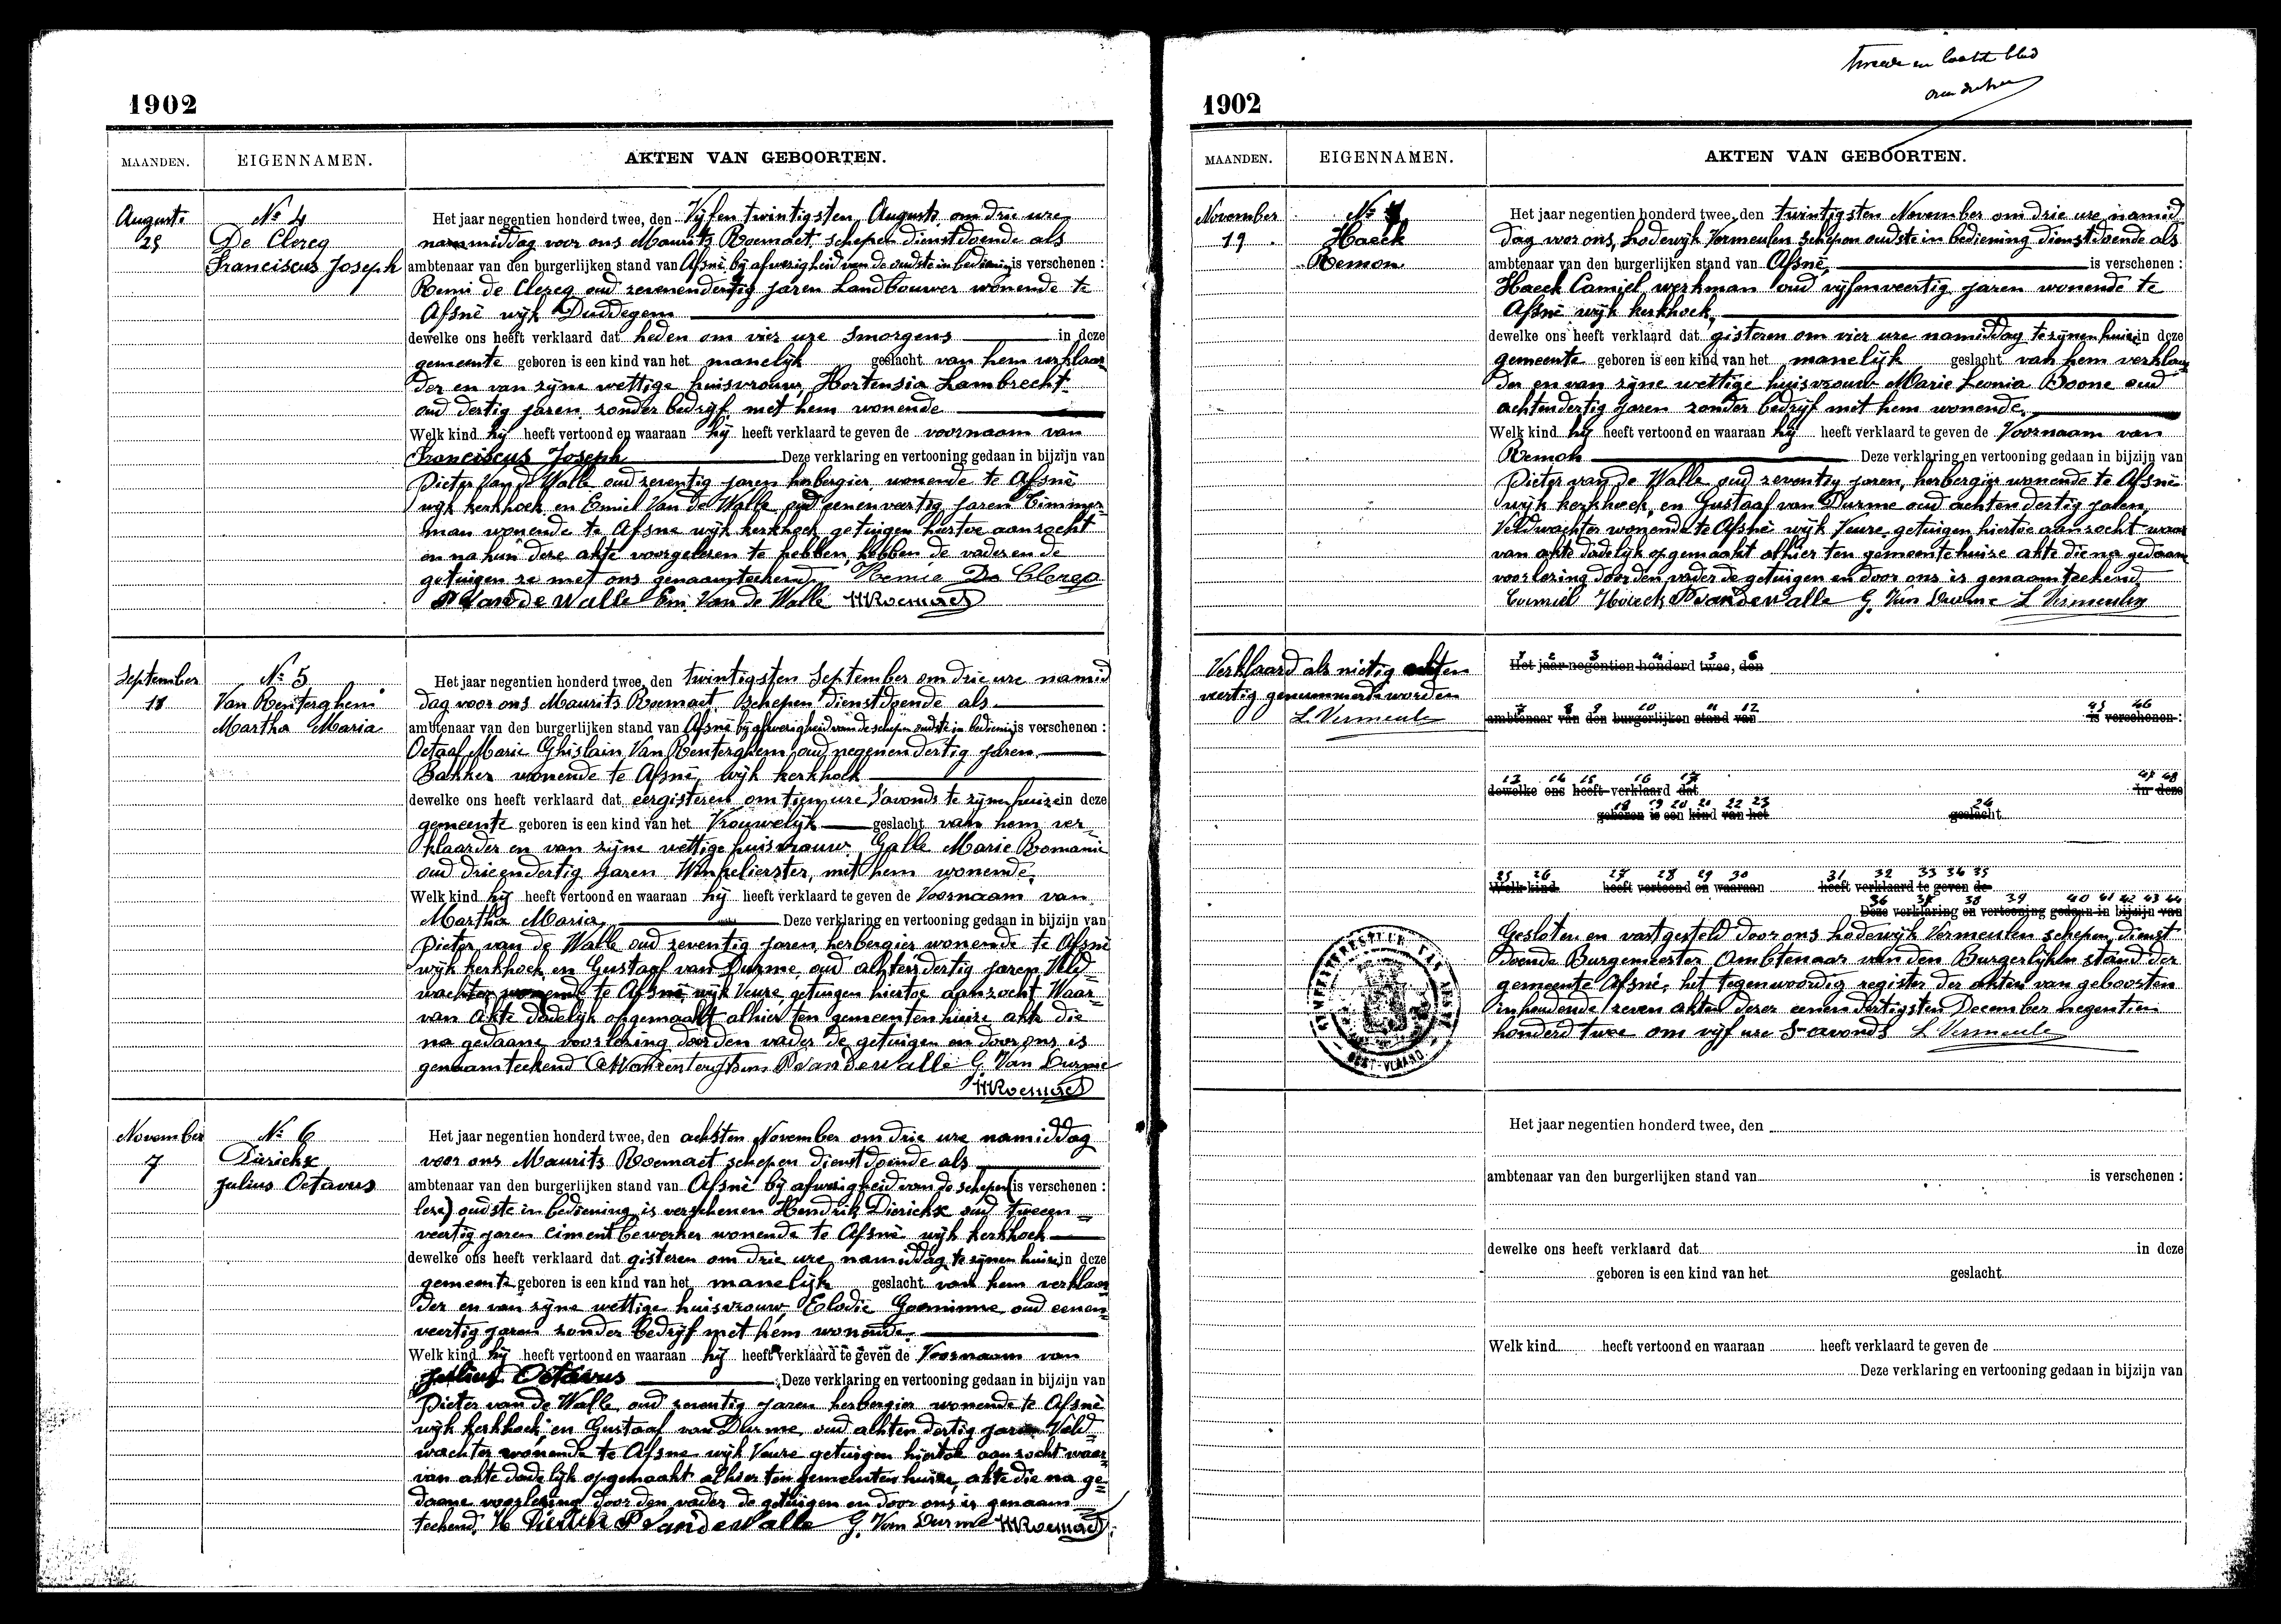 1902
MAANDEN.
EIGENNAMEN.
AKTEN VAN GEBOORTEN.
Augusti
25
Nº 4
De Clercq
Franciscus Joseph
Het jaar negentien honderd twee, den Vijfen twintigsten Augusti om drie ure
namiddag voor ons Maurits Roemaet, schepen dienstdoende als
ambtenaar van den burgerlijken stand van Afsné bij afwezigheid van de oudste in bediening is verschenen :
Remi de Clercq oud zevenendertig jaren Landbouwer wonende te
Afsné wijk Duddegem
dewelke ons heeft verklaard dat heden om vier ure smorgens in deze
gemeente geboren is een kind van het manelijk geslacht van hem verklaar
der en van zijne wettige huisvrouw Hortensia Lambrecht
oud dertig jaren zonder bedrijf met hem wonende
Welk kind hij heeft vertoond en waaraan hij heeft verklaard te geven de voornaam van
Franciscus Joseph Deze verklaring en vertooning gedaan in bijzijn van
Pieter Van de Walle oud zeventig jaren herbergier wonende te Afsné
wijk kerkhoek en Emiel Van de Walle oud eenenveertig jaren Timmer=
man wonende te Afsne wijk kerkhoek getuigen hiertoe aanzocht
en na hun deze akte voorgelezen te hebben, hebben de vader en de
getuigen ze met ons genaamteekend Remie De Clercq
P Vandewalle Em. Van de Walle MRoemaet
September
18
Nº 5
Van Renterghem
Martha Maria
Het jaar negentien honderd twee, den twintigsten September om drie ure namid
dag voor ons Maurits Roemaet, schepen dienstdoende als
ambtenaar van den burgerlijken stand van Afsné bij afwezigheid van de schepen oudste in bediening is verschenen :
Octaaf Marie Ghislain Van Renterghem, oud negenendertig jaren
Bakker wonende te Afsné, wijk kerkhoek
dewelke ons heeft verklaard dat eergisteren om tien ure s'avonds te zijnen huize in deze
gemeente geboren is een kind van het Vrouwelijk geslacht van hem ver
klaarder en van zijne wettige huisvrouw Galle Marie Romanie
oud drieendertig jaren Winkelierster, met hem wonende.
Welk kind hij heeft vertoond en waaraan hij heeft verklaard te geven de Voornaam van
Martha Maria Deze verklaring en vertooning gedaan in bijzijn van
Pieter van de Walle oud zeventig jaren, herbergier wonende te Afsné
wijk kerkhoek en Gustaaf van Durme, oud achtendertig jaren, Veld=
wachter wonende te Afsné wijk Veure getuigen hiertoe aanzocht Waar=
van akte dadelijk opgemaakt alhier ten gemeentenhuize akte die
na gedaane voorlezing door den vader de getuigen en door ons is
genaamteekend PVandewalle G. Van Durme
MRoemaet
November
7
Nº 6
Dierickx
Julius Octavus
Het jaar negentien honderd twee, den achsten November om drie ure namiddag
voor ons Maurits Roemaet schepen dienstdoende als
ambtenaar van den burgerlijken stand van Afsné bij afwezigheid van de schepen is verschenen :
(leze) oudste in bediening is verschenen Hendrik Dierickx oud tweeen=
veertig jaren cimentbewerker wonende te Afsné wijk kerkhoek
dewelke ons heeft verklaard dat gisteren om drie ure namiddag te zijnen huize in deze
gemeente geboren is een kind van het manelijk geslacht van hem verklaar
der en van zijne wettige huisvrouw Elodie Goeminne oud eenen=
veertig jaren zonder bedrijf met hem wonende.
Welk kind hij heeft vertoond en waaraan hij heeft verklaard te geven de Voornaam van
Julius Octavus Deze verklaring en vertooning gedaan in bijzijn van
Pieter van de Walle, oud zeventig jaren herbergier wonende te Afsné
wijk kerkhoek en Gustaaf van Durme, oud achtendertig jaren Veld=
wachter wonende te Afsne wijk Veure getuigen hiertoe aanzocht waar=
van akte dadelijk opgemaakt alhier ten gemeentenhuize, akte die na ge=
daane voorlezing door den vader de getuigen en door ons is genaam=
teekend. H Dierickx P Vandewalle G. Van Durme MRoemaet
tweede en laatste blad
1902
MAANDEN.
EIGENNAMEN.
AKTEN VAN GEBOORTEN.
November
19
Nº 7
Haeck
Remon
Het jaar negentien honderd twee, den twintigsten November om drie ure namid
dag voor ons, Lodewijk Vermeulen schepen oudste in bediening dienstdoende als
ambtenaar van den burgerlijken stand van Afsné, is verschenen :
Haeck Camiel, werkman oud vijfenveertig jaren wonende te
Afsné wijk kerkhoek,
dewelke ons heeft verklaard dat gisteren om vier ure namiddag te zijnen huize in deze
gemeente geboren is een kind van het manelijk geslacht van hem verklaar
der en van zijne wettige huisvrouw Marie Leonia Boone oud
achtendertig jaren zonder bedrijf met hem wonende.
Welk kind hij heeft vertoond en waaraan hij heeft verklaard te geven de Voornaam van
Remon Deze verklaring en vertooning gedaan in bijzijn van
Pieter van de Walle oud zeventig jaren, herbergier wonende te Afsné
wijk kerkhoek, en Gustaaf van Durme oud achtendertig jaren,
Veldwachter wonende te Afsné wijk Veure, getuigen hiertoe aanzocht waar
van akte dadelijk opgemaakt alhier ten gemeentehuize akte die na gedaane
voorlezing door den vader de getuigen en door ons is genaamteekend
Camiel Haeck PVandewalle G. Van Durme L Vermeulen
Verklaard als nietig achten
veertig genummerde woorden
L. Vermeulen
1 2 3 4 5 6
Het jaar negentien honderd twee, den
7 8 9 10 11 12 45 46
ambtenaar van den burgerlijken stand van is verschenen :
13 14 15 16 17 47 48
dewelke ons heeft verklaard dat in deze
18 19 20 21 22 23 24
geboren is een kind van het geslacht
25 26 27 28 29 30 31 32 33 34 35
Welk kind heeft vertoond en waaraan heeft verklaard te geven de
36 37 38 39 40 41 42 43 44
Deze verklaring en vertooning gedaan in bijzijn van
Gesloten en vastgesteld door ons Lodewijk Vermeulen schepen, dienst
doende Burgemeester Ambtenaar van den Burgerlijken stand der
gemeente Afsné, het tegenwoordig register der akten van geboorten
inhoudende zeven akten dezer eenendertigsten December negentien
honderd twee om vijf ure s'avonds L Vermeulen
GEMEENTEBESTUUR VAN AFSNÉ
OOST-VLAAND.
Het jaar negentien honderd twee, den
ambtenaar van den burgerlijken stand van is verschenen :
dewelke ons heeft verklaard dat in deze
geboren is een kind van het geslacht
Welk kind heeft vertoond en waaraan heeft verklaard te geven de
Deze verklaring en vertooning gedaan in bijzijn van